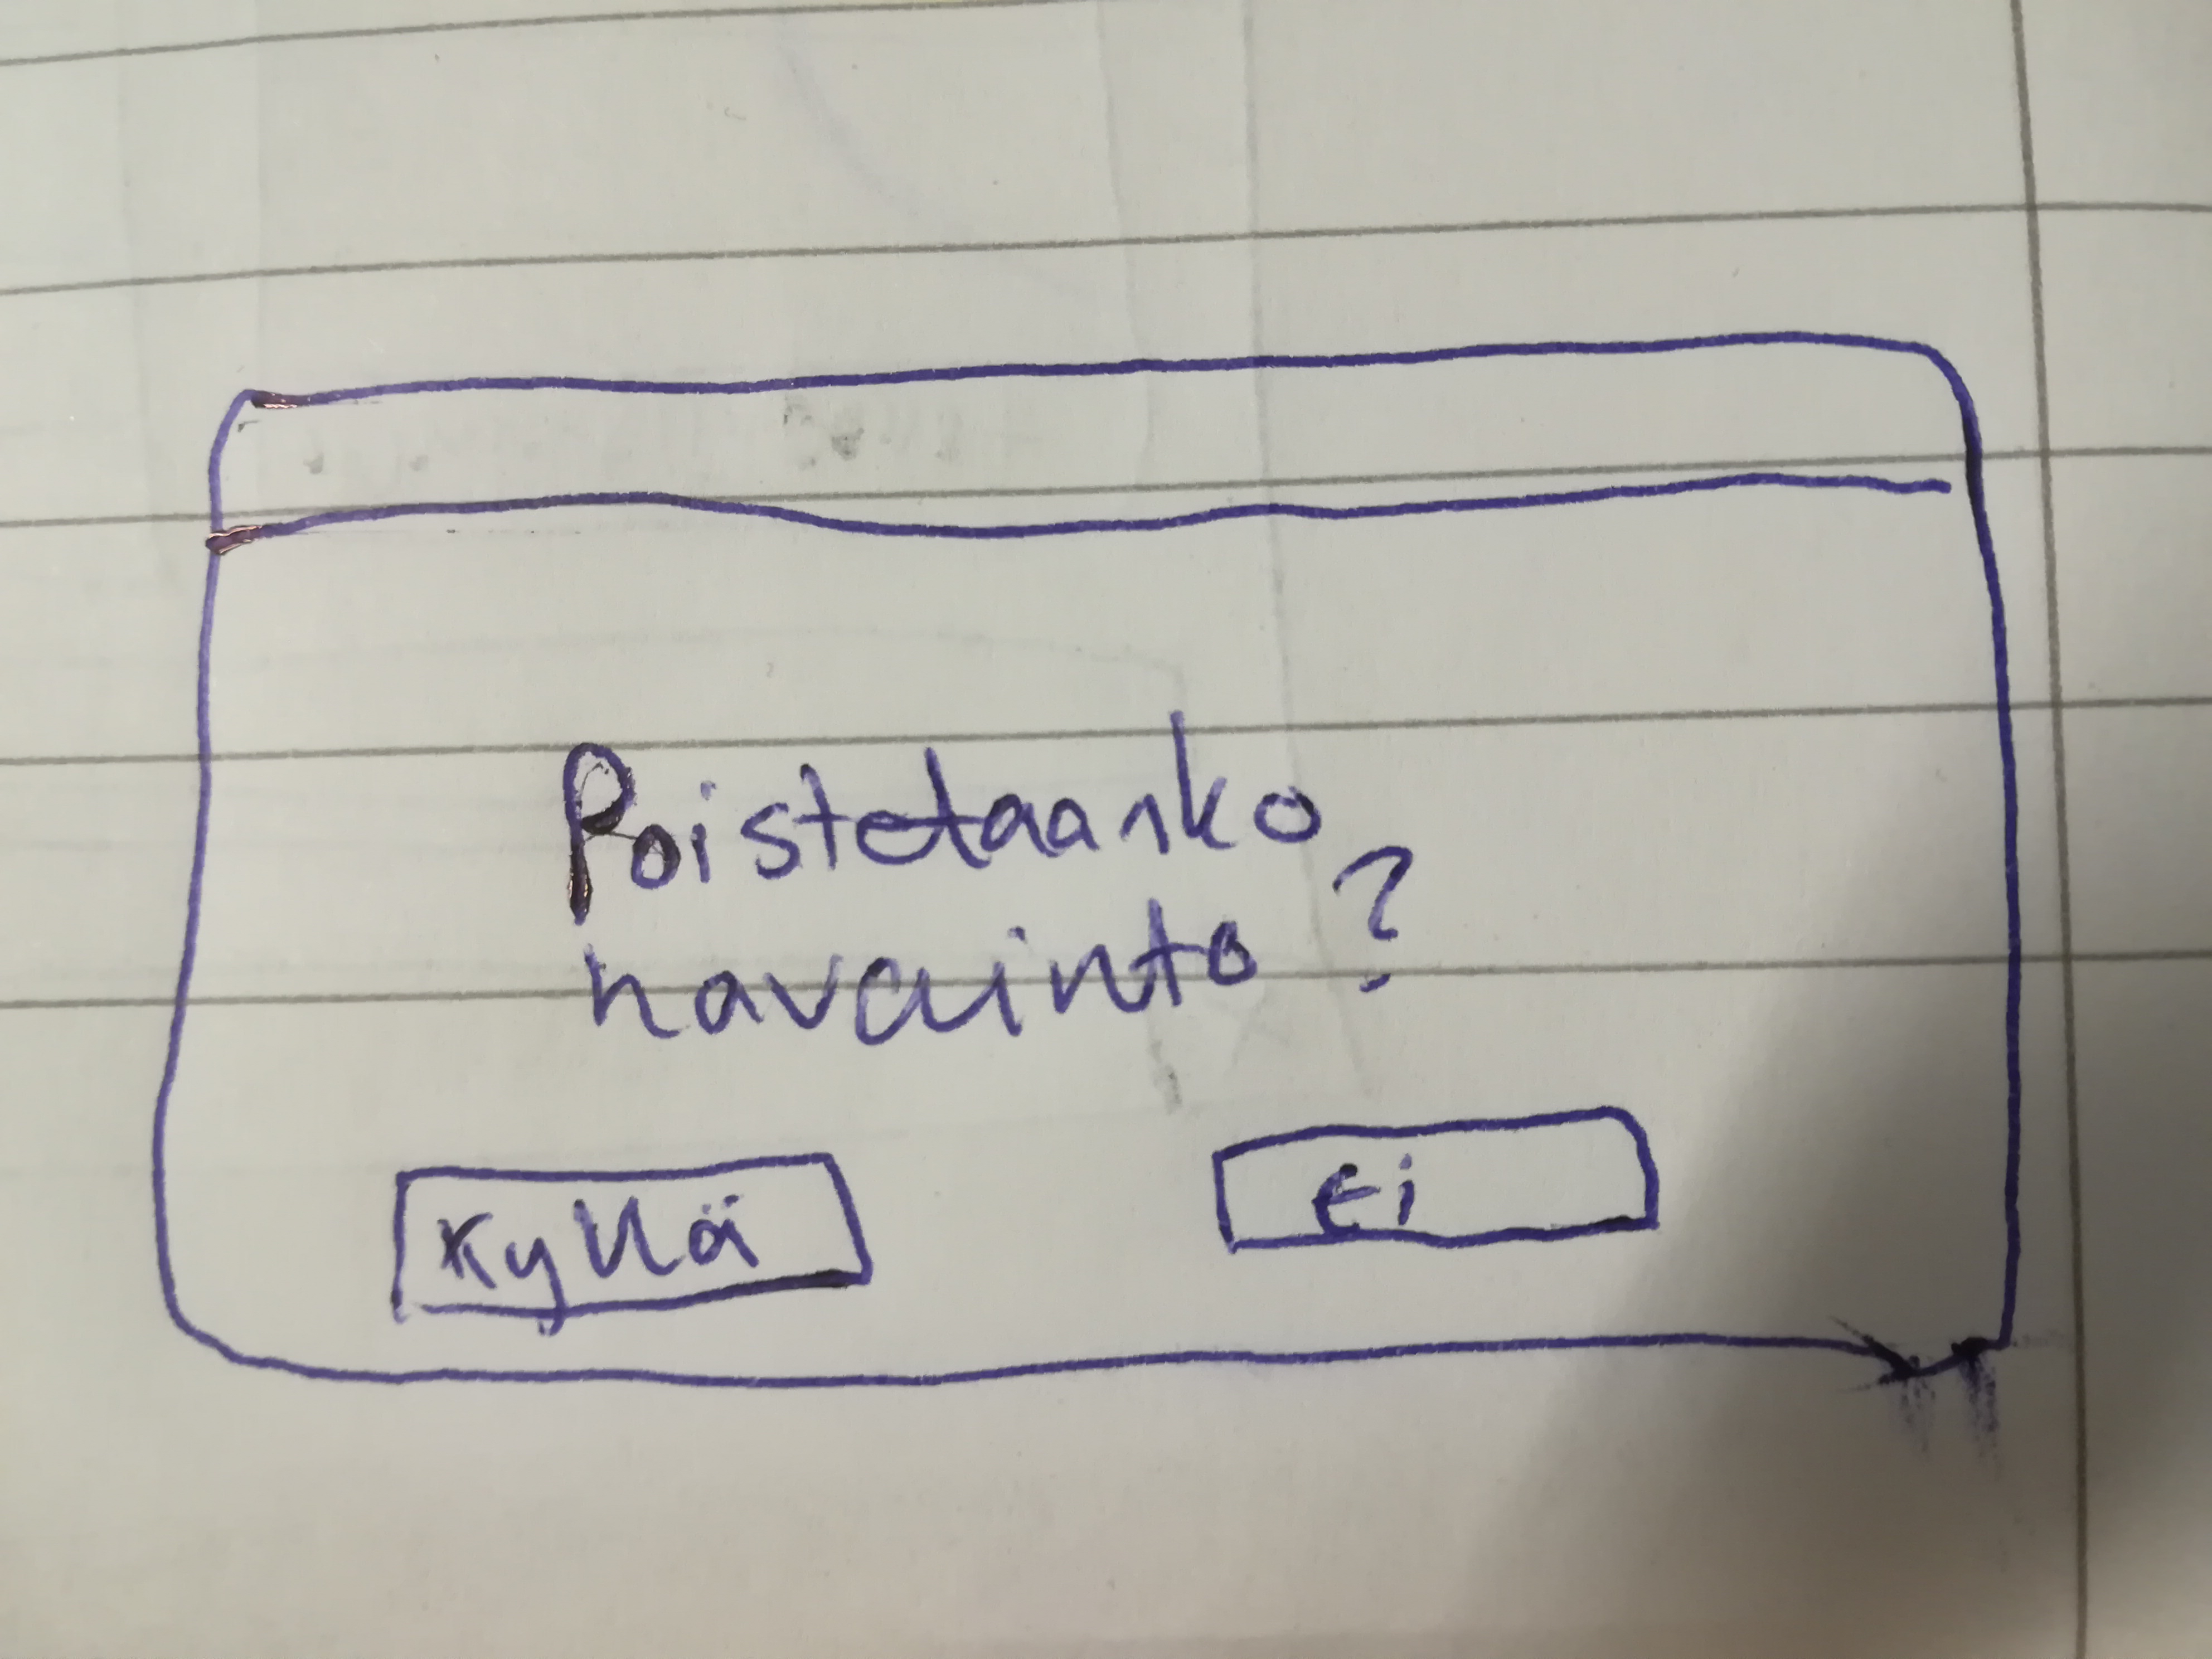 Poistetaanko
havainto?
Kyllä
Ei